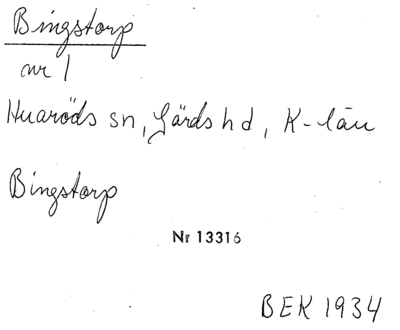 Bingstorp
nr 1
Huaröds sn, Gärds hd, K-län
Bingstorp
Nr 13316
BEK 1934